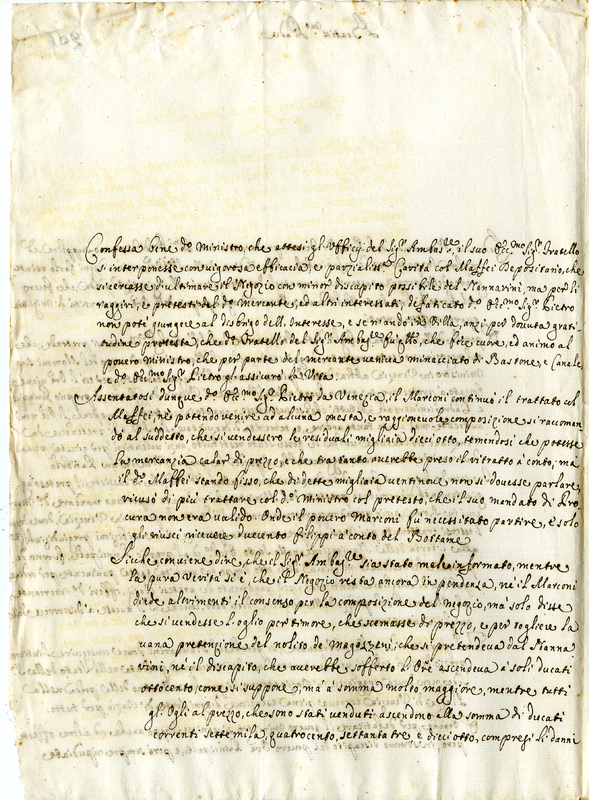 Confessa bene d.º Ministro, che attesi gl'Ufficij del Sig.r Ambas.re, il suo Ecc.mo Sig.r Fratello
si interponesse con vigorosa efficacia, e parzialiss.a Carità col Maffei Depositario, che
si cercasse di ultimare il Negozio con minor discapito possibile del Nannarini, ma per li
raggiri, e pretesti del d.º Mercante, ed altri interessati, defaticato d.º Ecc.mo Sig.r Pietro
non potè giungere al disbrigo dell'Interesse, e se n'andò in Villa, anzi per dovuta grati-
tudine protesta, che d.º Fratello del Sig.r Amb.re fu q.llo, che fece cuore, ed animo al
povero Ministro, che per parte del mercante veniva minacciato di Bastone, e Canale
e d.º Ecc.mo Sig.r Pietro gl'assicurò la Vita.
Assentatosi dunque d.º Ecc.mo Sig.r Pietro da Venezia, il Marconi continuò il trattato col
Maffei, nè potendo venire ad alcuna onesta, e raggionevole composizione si raccoman
dò al suddetto, che si vendessero le residuali migliaia dieciotto, temendosi che potesse
la mercanzia calar di prezzo, e che tra tanto averebbe preso il ritratto à conto, mà
il d.º Maffei stando fisso, che di dette migliaia ventinove non si dovesse parlare,
ricusò di più trattare col d.º Ministro col pretesto, che il suo mandato di Pro
cura non era valido. Onde il povero Marconi fu necessitato partire, e solo
gli riuscì ricevere duecento filippi à conto del Bottame
Siche conviene dire, che il Sig.r Ambas.re sia stato mele informato, mentre
la pura Verità si è, che il Negozio resta ancora in pendenza, nè il Marconi
diede altrimenti il consenso per la composizione del negozio, mà solo disse
che si vendesse l'oglio per timore, che scemasse di prezzo, e per togliere la
vana pretenzione del nolito de Magazzeni, che si pretendeva dal Nanna
rini, nè il discapito, che averebbe sofferto l'Ore ascendeva à soli ducati
ottocento, come si suppone, mà à somma molto maggiore, mentre tutti
gli Ogli al prezzo, che sono stati venduti ascendono alla somma di ducati
correnti sette mila, quatrocento, settanta tre, e dieciotto, compresi li danni